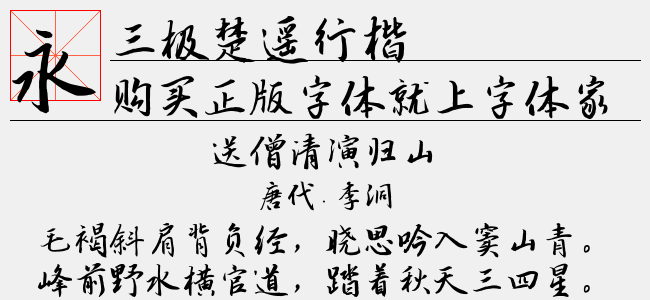 永
三极楚遥行楷
购买正版字体就上字体家
送僧清演归山
唐代.李洞
毛褐斜肩背负经，晓思吟入窦山青。
峰前野水横官道，踏着秋天三四星。